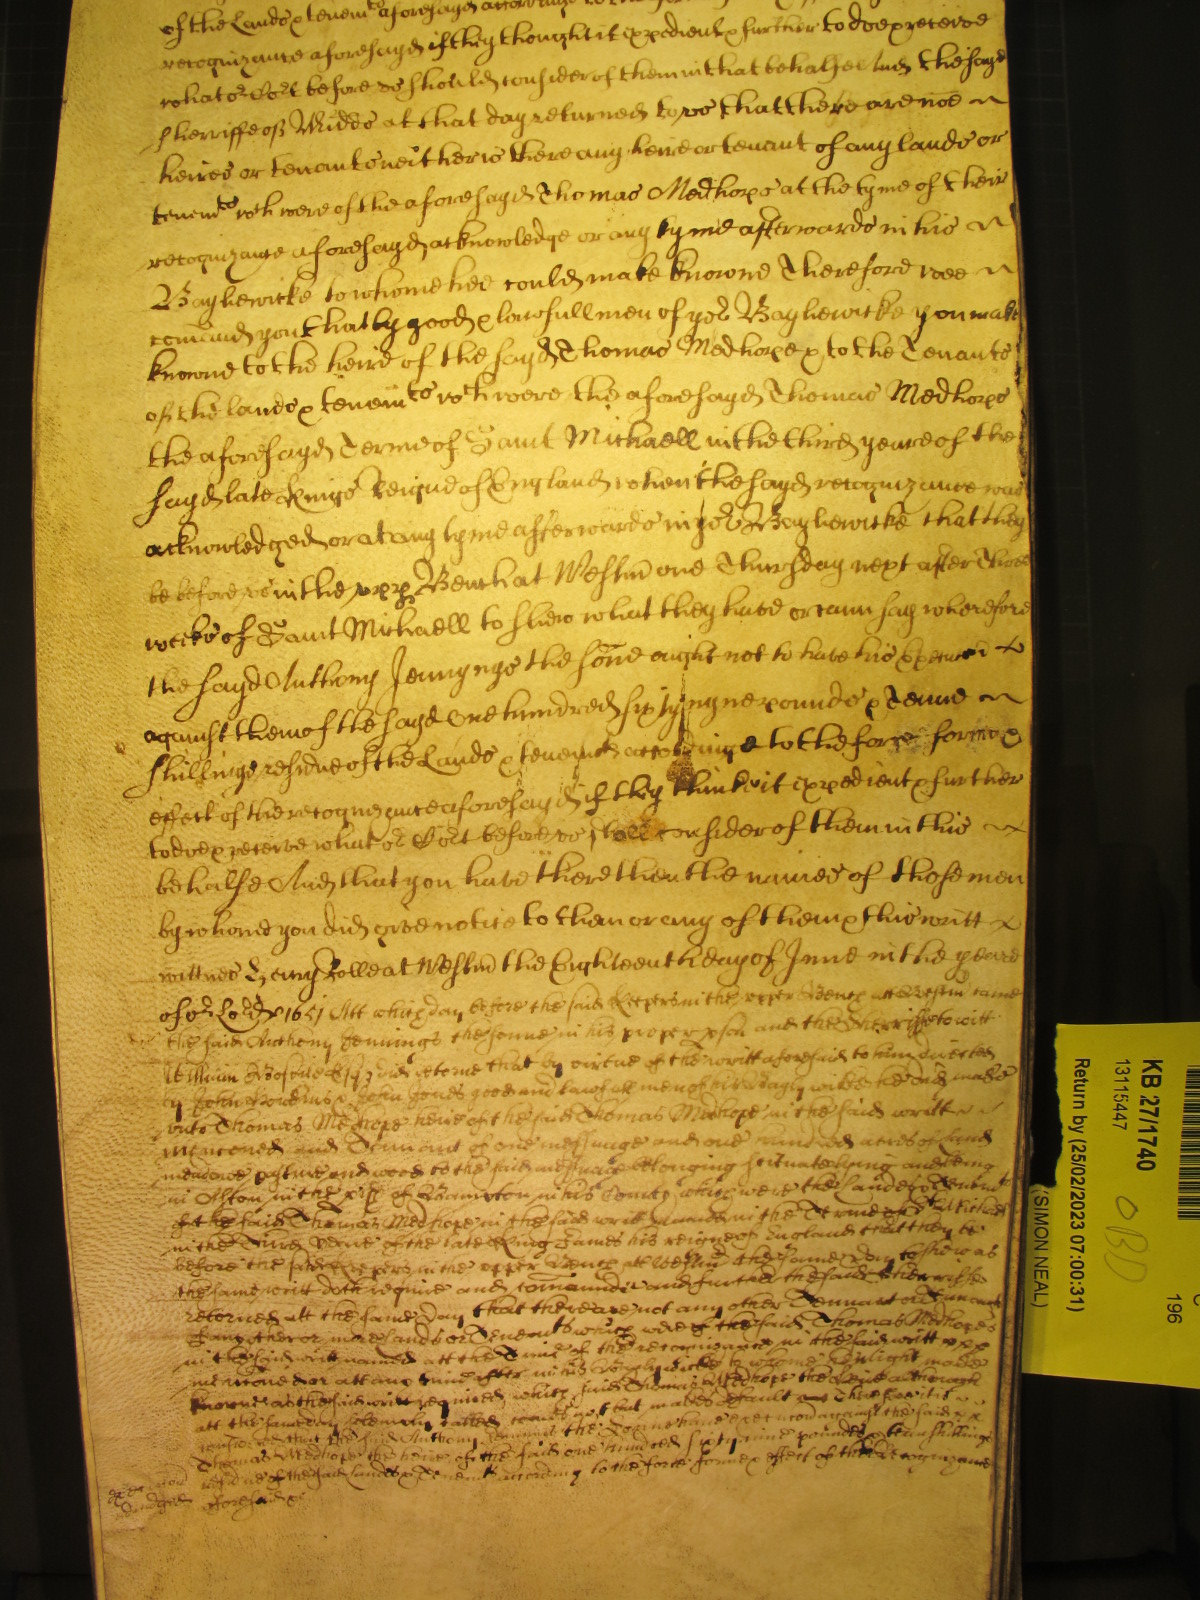 of the Lands & tenemts aforesayd according to the
recognizance aforesayd if they thought it expedient & further to doe & receive
what or Cort before us should consider of them in that behalfe And the sayd
Sherriffe of Midds at that day returned to us that there are noe
heires or tenants neither is there any heire or tenant of any lands or
tenemts wch were of the aforesayd Thomas Medhope at the tyme of their
recognizance aforesayd acknowledge or any tyme afterwards in his
Bayliewicke to whome hee could make knowne Therefore wee
comaund you that by good & lawfull men of yor Bayliewicke you make
knowne to the heire of the sayd Thomas Medhope & to the Tenants
of the lands & tenemts wch were the aforesayd Thomas Medhops
the aforesayd Terme of Saint Michaell in the third yeare of the
sayd late Kings Reigne of England when the sayd recognizance was
acknowledged or at any tyme afterwards in yor Bayliewicke that they
be before us in the upp Bench at Westm one Thursday next after Three
weeks of Saint Michaell to shew what they have or cann say wherefore
the sayd Anthony Jennyngs the sone ought not to have his Execucon
against them of the sayd one hundred sixty nyne pounds & Tenne
shillings residue of the Lands & tenemts according to the force forme &
effect of the recognizance aforesayd if they thinke it expedient & further
to doe & receive what or Cort before us shall consider of them in this
behalfe And that you have there then the names of those men
by whome you did give notice to them or any of them & this writt
wittnes Henry Rolle at Westm the Eighteenth day of June in the yeare
of or Lord 1651 Att which day before the said Keepers in the upper Bench att Westm came
the said Anthony Jennings the sonne in his proper pson and the Sherriffe to witt
William Esq did retorne that by virtue of the writt aforesaid to him directed
by John & John Jones good and lawfull men of his Baylywicke he did make
unto Thomas Medhope heire of the said Thomas Medhope in the said writt
menconed and Tennant of one messuage and one hundred acres of land
meadowe pasture and wood to the said messuage belonging scituate lying and being
in Alton in the pish of in his County which were the Lands & Tenemts
of the said Thomas Medhope in the said writt named in the Terme of St Michael
in the Third yeare of the late King James his reigne of England that they be
before the said Keepers in the upper Bench att Westm the same day to shew as
the same writt doth require and comaund and further the said Sherriffe
retorned att the same day that there are not any other Tennant or Tennants
of any other or more lands or Tenemts which were of the said Thomas Medhopes
in the said writt named att the Tyme of the recognizance in the said writt
menconed or att any time after in his Baylywicke to whome he might make
knowne as the said writt required which said Thomas Medhope the heire although
att the same day solemnly called came not but made default Therefore it is
considered that the said Anthony Jennings the Sonne have execucon against the said
Thomas Medhope the heire of the said one hundred sixty nine pounds & tenn shillings
residue of the said lands & Tenemts according to the force forme & effect of the Recognizance
aforesaid &c
KB 27/1740
13115447
Return by (25/02/2023 07:00:31)
(SIMON NEAL)
196
OBD